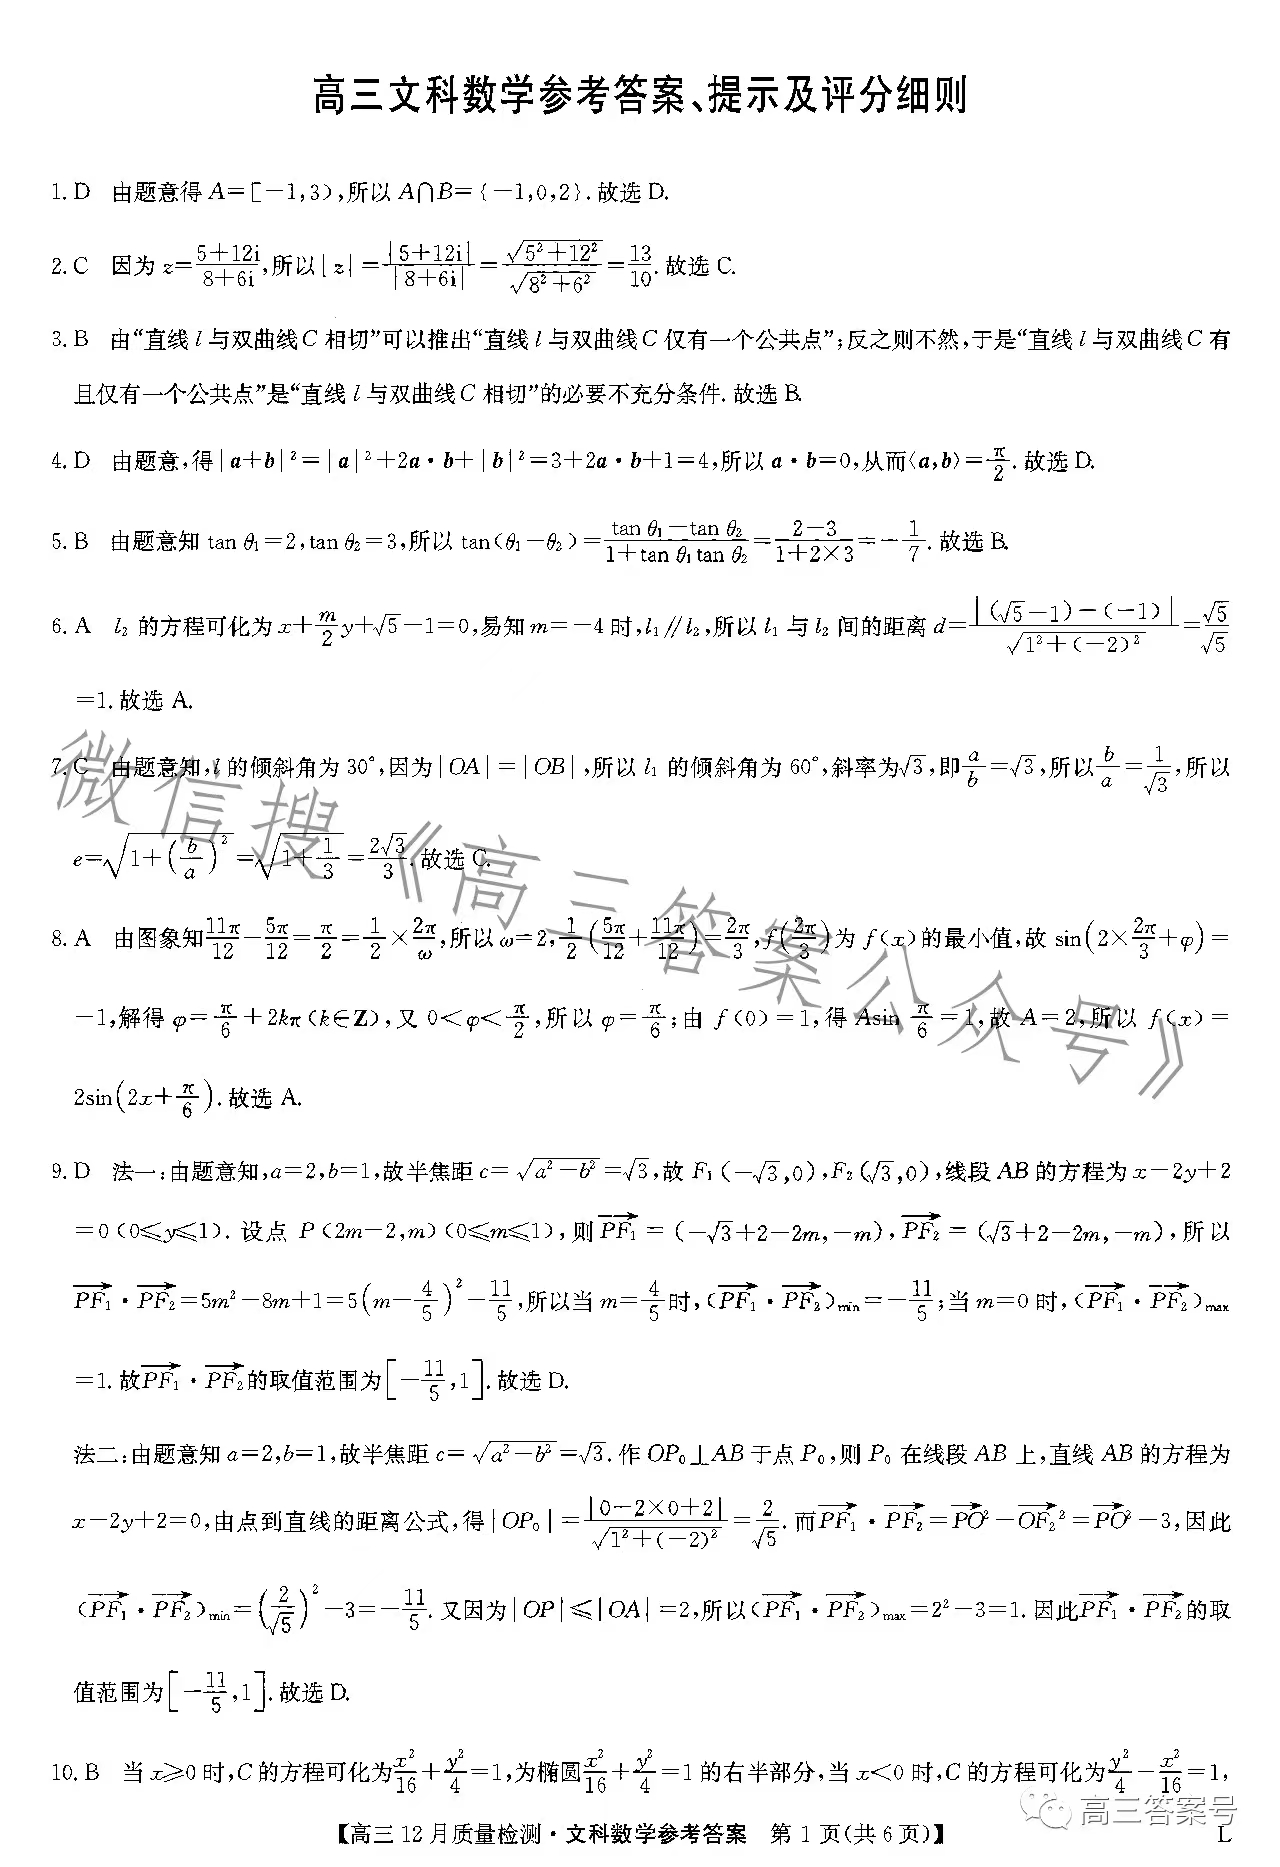 高三文科数学参考答案、提示及评分细则
1. D 由题意得 A=[-1,3),所以 A∩B={-1,0,2}. 故选 D.
2. C 因为 z=\frac{5+12i}{8+6i},所以|z|=\frac{|5+12i|}{|8+6i|}=\frac{\sqrt{5²+12²}}{\sqrt{8²+6²}}=\frac{13}{10}. 故选 C.
3. B 由“直线 l 与双曲线 C 相切”可以推出“直线 l 与双曲线 C 仅有一个公共点”;反之则不然,于是“直线 l 与双曲线 C 有
且仅有一个公共点”是“直线 l 与双曲线 C 相切”的必要不充分条件. 故选 B.
4. D 由题意,得|a+b|²=|a|²+2a·b+|b|²=3+2a·b+1=4,所以 a·b=0,从而⟨a,b⟩=\frac{π}{2}. 故选 D.
5. B 由题意知 tan θ₁=2,tan θ₂=3,所以 tan(θ₁-θ₂)=\frac{tan θ₁-tan θ₂}{1+tan θ₁tan θ₂}=\frac{2-3}{1+2×3}=-\frac{1}{7}. 故选 B.
6. A l₂ 的方程可化为 x+\frac{m}{2}y+√5-1=0,易知 m=-4 时,l₁∥l₂,所以 l₁ 与 l₂ 间的距离 d=\frac{|(√5-1)-(-1)|}{\sqrt{1²+(-2)²}}=\frac{√5}{√5}
=1. 故选 A.
7. C 由题意知,l 的倾斜角为 30°,因为|OA|=|OB|,所以 l₁ 的倾斜角为 60°,斜率为√3,即\frac{a}{b}=√3,所以\frac{b}{a}=\frac{1}{√3},所以
e=\sqrt{1+(\frac{b}{a})²}=\sqrt{1+\frac{1}{3}}=\frac{2√3}{3}. 故选 C.
8. A 由图象知\frac{11π}{12}-\frac{5π}{12}=\frac{π}{2}=\frac{1}{2}×\frac{2π}{ω},所以 ω=2,\frac{1}{2}(\frac{5π}{12}+\frac{11π}{12})=\frac{2π}{3},f(\frac{2π}{3})为 f(x)的最小值,故 sin(2×\frac{2π}{3}+φ)=
-1,解得 φ=\frac{π}{6}+2kπ(k∈Z),又 0<φ<\frac{π}{2},所以 φ=\frac{π}{6};由 f(0)=1,得 Asin \frac{π}{6}=1,故 A=2,所以 f(x)=
2sin(2x+\frac{π}{6}). 故选 A.
9. D 法一:由题意知,a=2,b=1,故半焦距 c=\sqrt{a²-b²}=√3,故 F₁(-√3,0),F₂(√3,0),线段 AB 的方程为 x-2y+2
=0(0≤y≤1). 设点 P(2m-2,m)(0≤m≤1),则\overrightarrow{PF₁}=(-√3+2-2m,-m),\overrightarrow{PF₂}=(√3+2-2m,-m),所以
\overrightarrow{PF₁}·\overrightarrow{PF₂}=5m²-8m+1=5(m-\frac{4}{5})²-\frac{11}{5},所以当 m=\frac{4}{5}时,(\overrightarrow{PF₁}·\overrightarrow{PF₂})_{min}=-\frac{11}{5};当 m=0 时,(\overrightarrow{PF₁}·\overrightarrow{PF₂})_{max}
=1. 故\overrightarrow{PF₁}·\overrightarrow{PF₂}的取值范围为[-\frac{11}{5},1]. 故选 D.
法二:由题意知 a=2,b=1,故半焦距 c=\sqrt{a²-b²}=√3. 作 OP₀⊥AB 于点 P₀,则 P₀ 在线段 AB 上,直线 AB 的方程为
x-2y+2=0,由点到直线的距离公式,得|OP₀|=\frac{|0-2×0+2|}{\sqrt{1²+(-2)²}}=\frac{2}{√5}. 而\overrightarrow{PF₁}·\overrightarrow{PF₂}=\overrightarrow{PO}²-\overrightarrow{OF₂}²=\overrightarrow{PO}²-3,因此
(\overrightarrow{PF₁}·\overrightarrow{PF₂})_{min}=(\frac{2}{√5})²-3=-\frac{11}{5}. 又因为|OP|≤|OA|=2,所以(\overrightarrow{PF₁}·\overrightarrow{PF₂})_{max}=2²-3=1. 因此\overrightarrow{PF₁}·\overrightarrow{PF₂}的取
值范围为[-\frac{11}{5},1]. 故选 D.
10. B 当 x≥0 时,C 的方程可化为\frac{x²}{16}+\frac{y²}{4}=1,为椭圆\frac{x²}{16}+\frac{y²}{4}=1 的右半部分,当 x<0 时,C 的方程可化为\frac{y²}{4}-\frac{x²}{16}=1,
【高三 12 月质量检测·文科数学参考答案 第 1 页(共 6 页)】 L
微信搜《高三答案公众号》
高三答案号